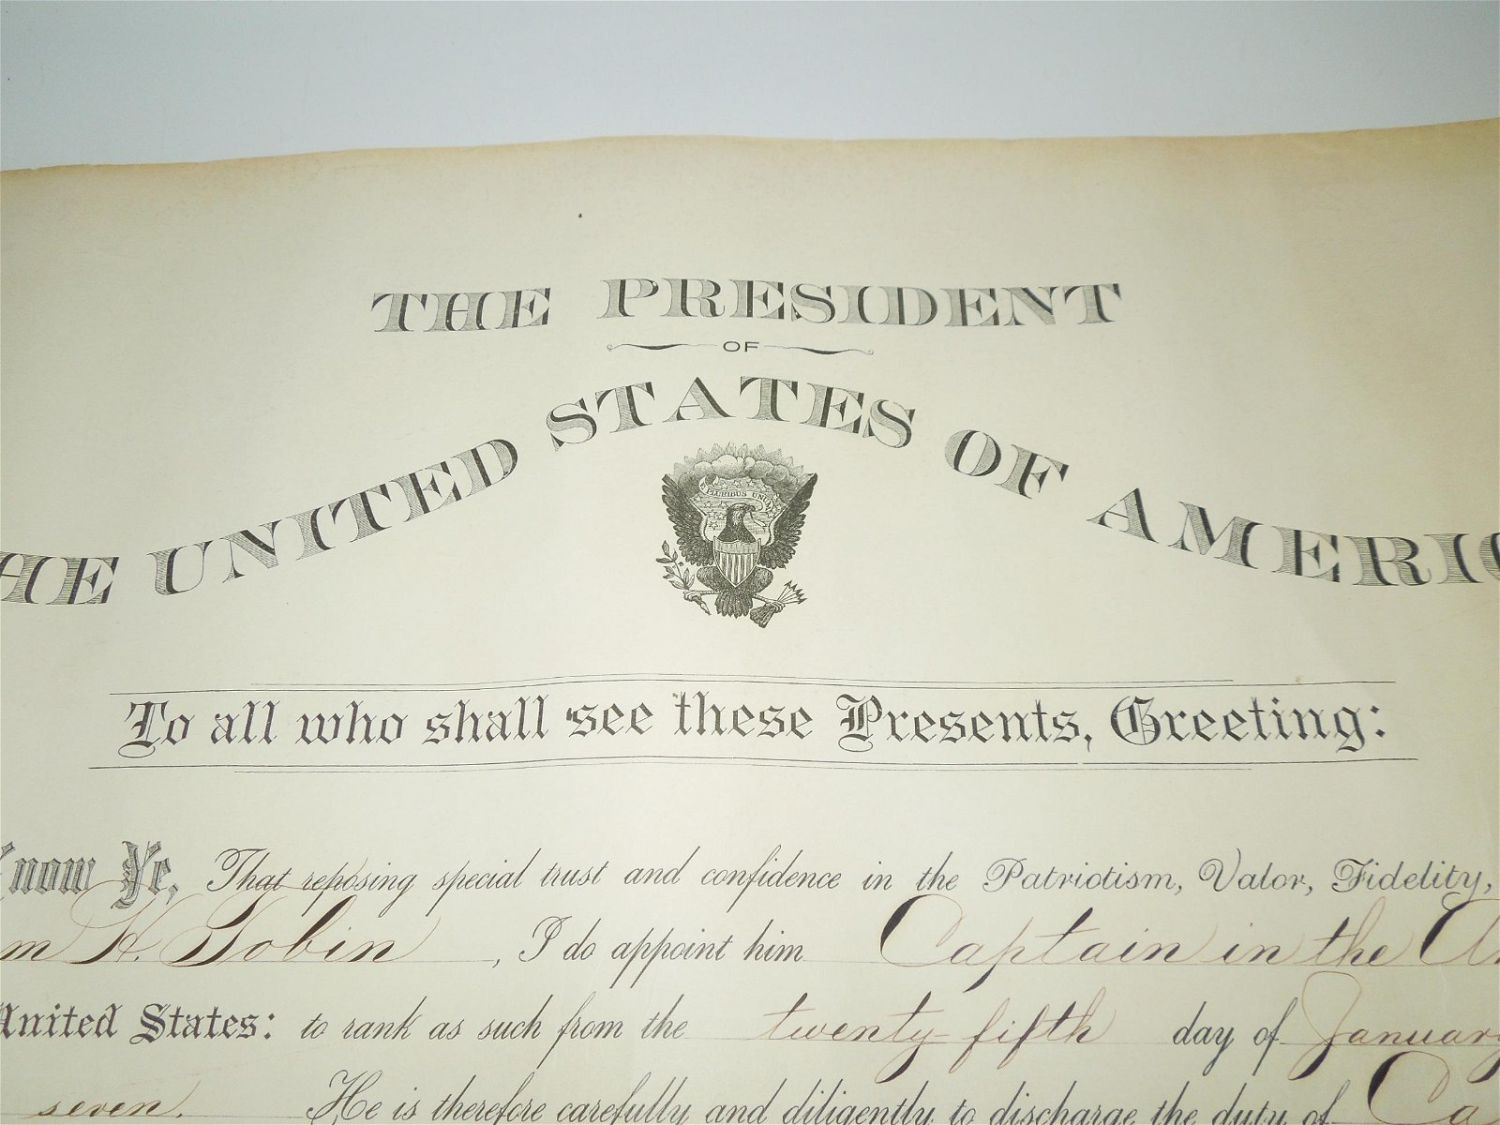 THE PRESIDENT
OF
HE UNITED STATES OF AMERIC
E PLURIBUS UNUM
To all who shall see these Presents, Greeting:
Know Ye, That reposing special trust and confidence in the Patriotism, Valor, Fidelity,
m H. Tobin, I do appoint him Captain in the
United States: to rank as such from the twenty-fifth day of January
seven. He is therefore carefully and diligently to discharge the duty of Ca